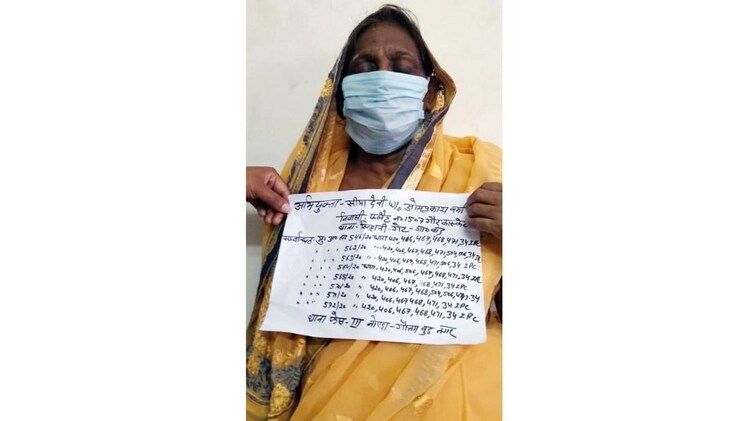 अभियुक्ता - सीमा देवी w/o ओमप्रकाश
निवासी: फ्लैट नं 1507 गौर
थाना- सिहानी गेट- गा०बाद
सम्बन्धित मु० अ० सं० 546/20 धारा 420, 406, 467, 468, 471, 34 IPC
" " " 562/20 " 420, 406, 467, 468, 471, 504, 506, 34 IPC
" " " 563/20 " 420, 406, 467, 468, 471, 506, 34 IPC
" " " 564/20 धारा 420, 406, 506, 467, 468, 471, 34 IPC
" " " 565/20 " 420, 406, 467, 468, 471, 34 IPC
" " " 570/20 " 420, 406, 467, 468, 504, 506, 471, 34
" " " 571/20 " 420, 406, 467, 468, 471, 34 IPC
" " " 572/20 " 420, 406, 467, 468, 471, 34 IPC
थाना फेस-III नोएडा - गौतम बुद्ध नगर